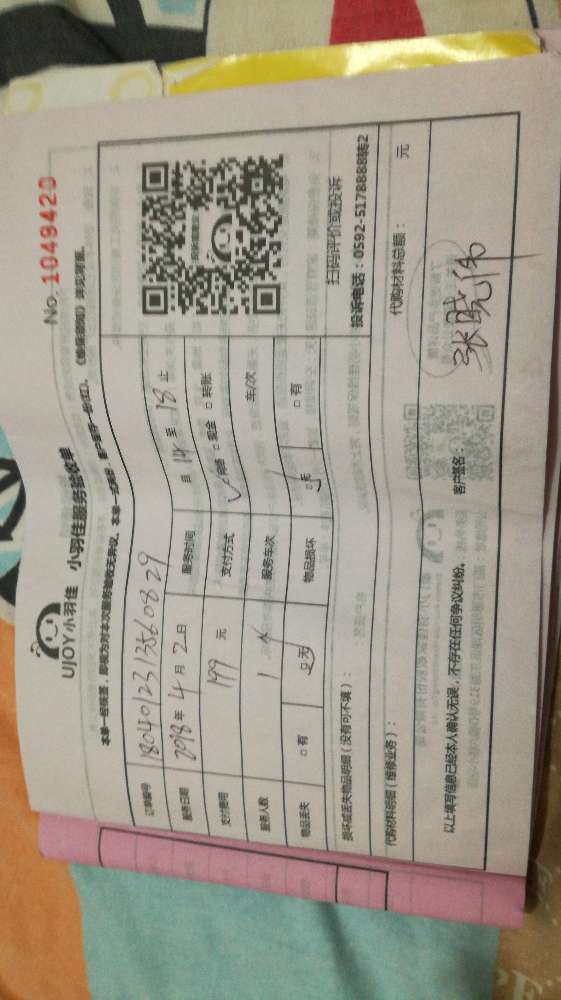 No. 1049420
UJOY小羽佳 小羽佳服务验收单
本单一经签署，即视为对本次服务验收无异议。本单一式两份，客户留存一份(红)。《维保须知》详见背面。
订单编号 180401231356 0829
服务日期 2018年4月2日 服务时间 自14至18止
支付费用 199元 支付方式 ☑网络 □现金 □转账
服务人数 1人 服务车次 车/次
物品丢失 □有 □无 物品损坏 □无 □有
扫码评价或投诉
投诉电话：0592-5178888转2
损坏或丢失物品明细（没有可不填）：
代购材料明细（维修业务）： 代购材料总额： 元
以上填写信息已经本人确认无误，不存在任何争议纠纷。 客户签名： 张晓伟